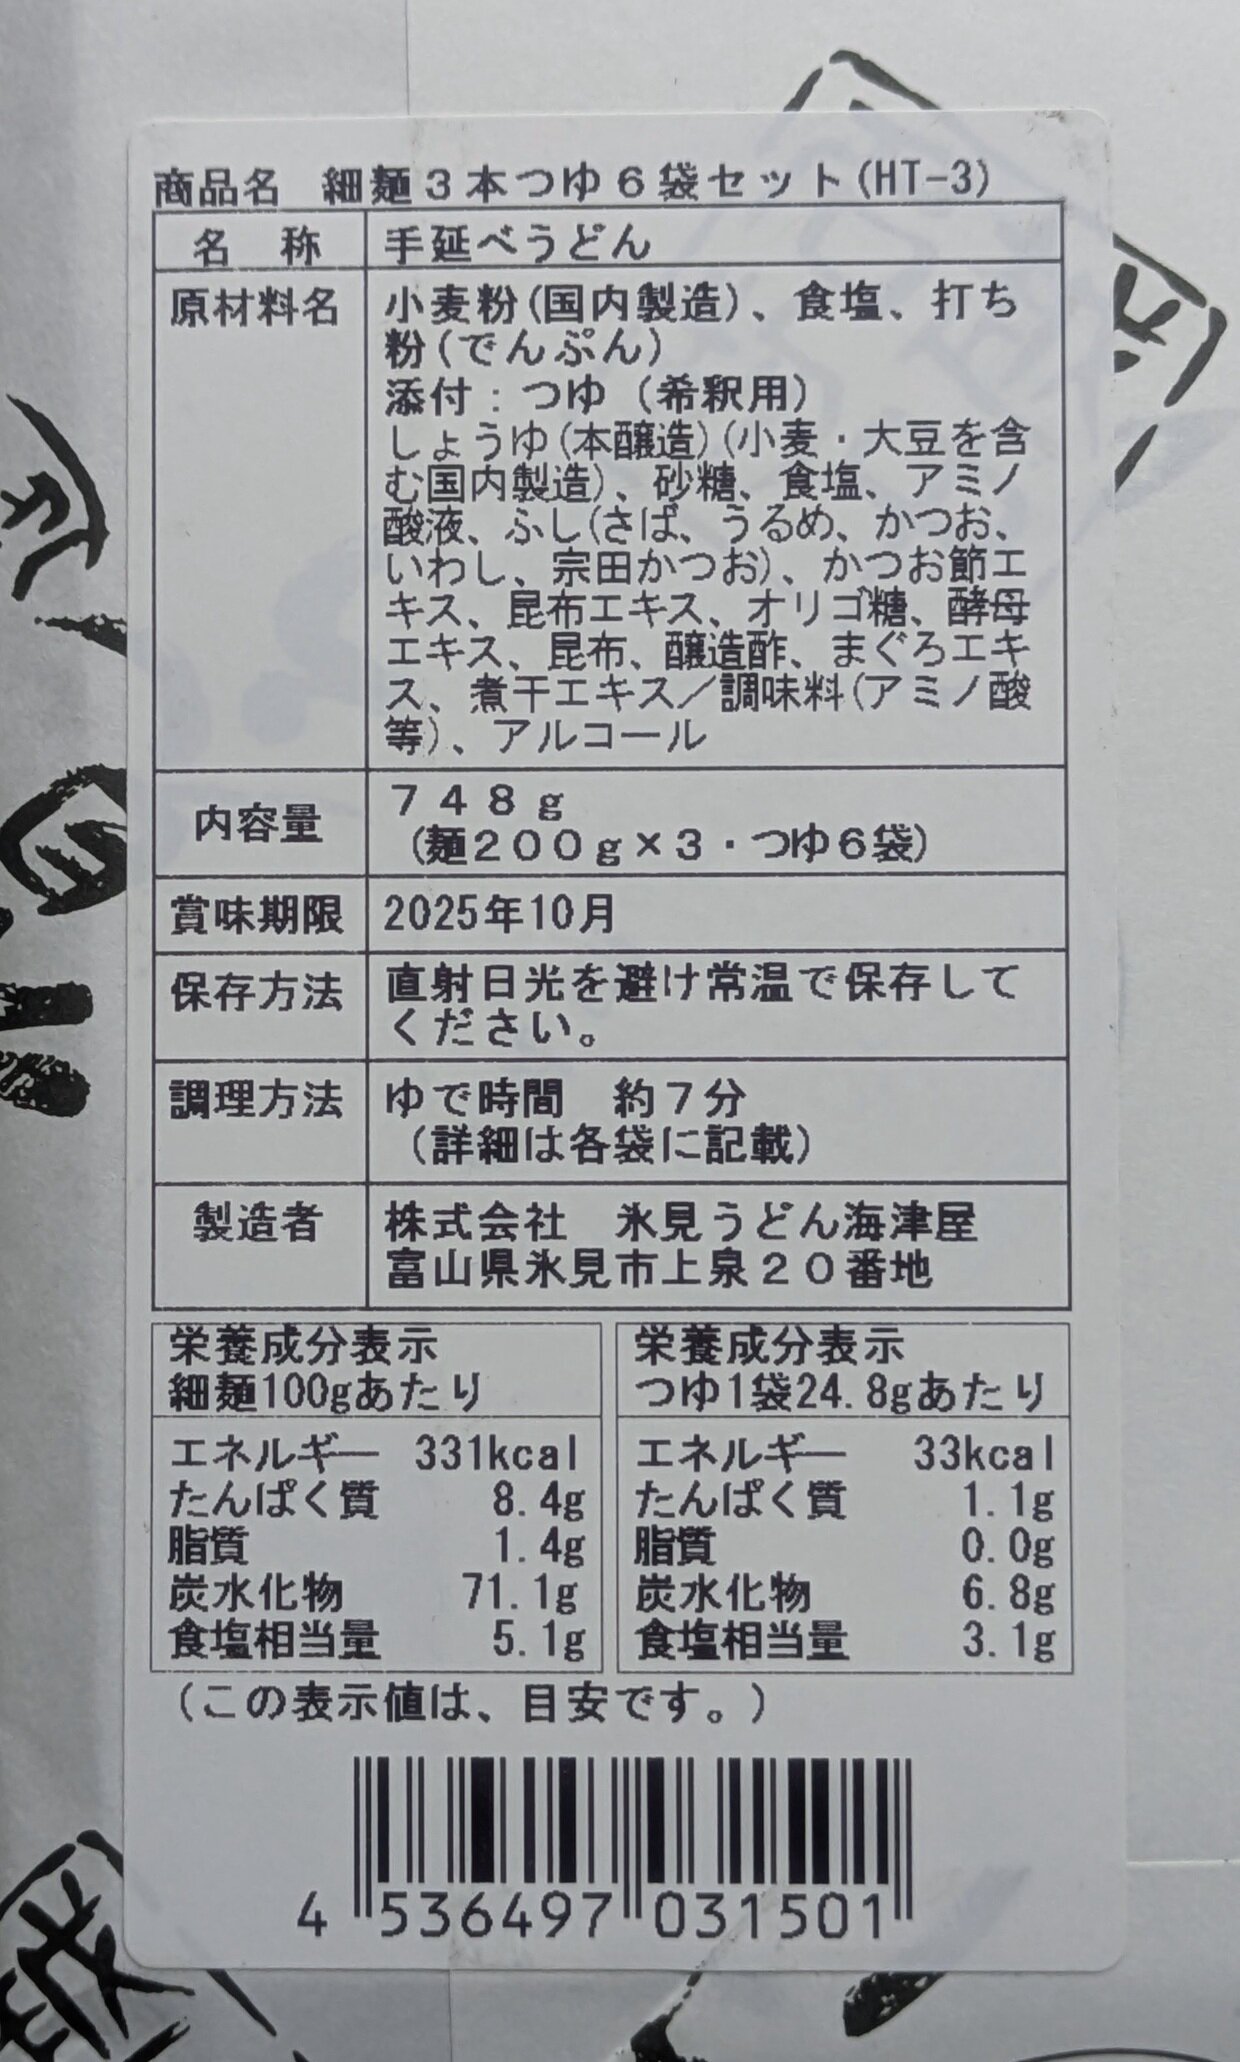 商品名　細麺３本つゆ６袋セット(HT-3)
名　称　手延べうどん
原材料名　小麦粉(国内製造)、食塩、打ち
粉(でんぷん)
添付：つゆ（希釈用）
しょうゆ(本醸造)(小麦・大豆を含
む国内製造)、砂糖、食塩、アミノ
酸液、ふし(さば、うるめ、かつお、
いわし、宗田かつお)、かつお節エ
キス、昆布エキス、オリゴ糖、酵母
エキス、昆布、醸造酢、まぐろエキ
ス、煮干エキス／調味料(アミノ酸
等)、アルコール
内容量　７４８ｇ
（麺２００ｇ×３・つゆ６袋）
賞味期限　2025年10月
保存方法　直射日光を避け常温で保存して
ください。
調理方法　ゆで時間　約７分
（詳細は各袋に記載）
製造者　株式会社　氷見うどん海津屋
富山県氷見市上泉２０番地
栄養成分表示
細麺100gあたり
エネルギー 331kcal
たんぱく質 8.4g
脂質 1.4g
炭水化物 71.1g
食塩相当量 5.1g
栄養成分表示
つゆ1袋24.8gあたり
エネルギー 33kcal
たんぱく質 1.1g
脂質 0.0g
炭水化物 6.8g
食塩相当量 3.1g
（この表示値は、目安です。）
4 536497 031501